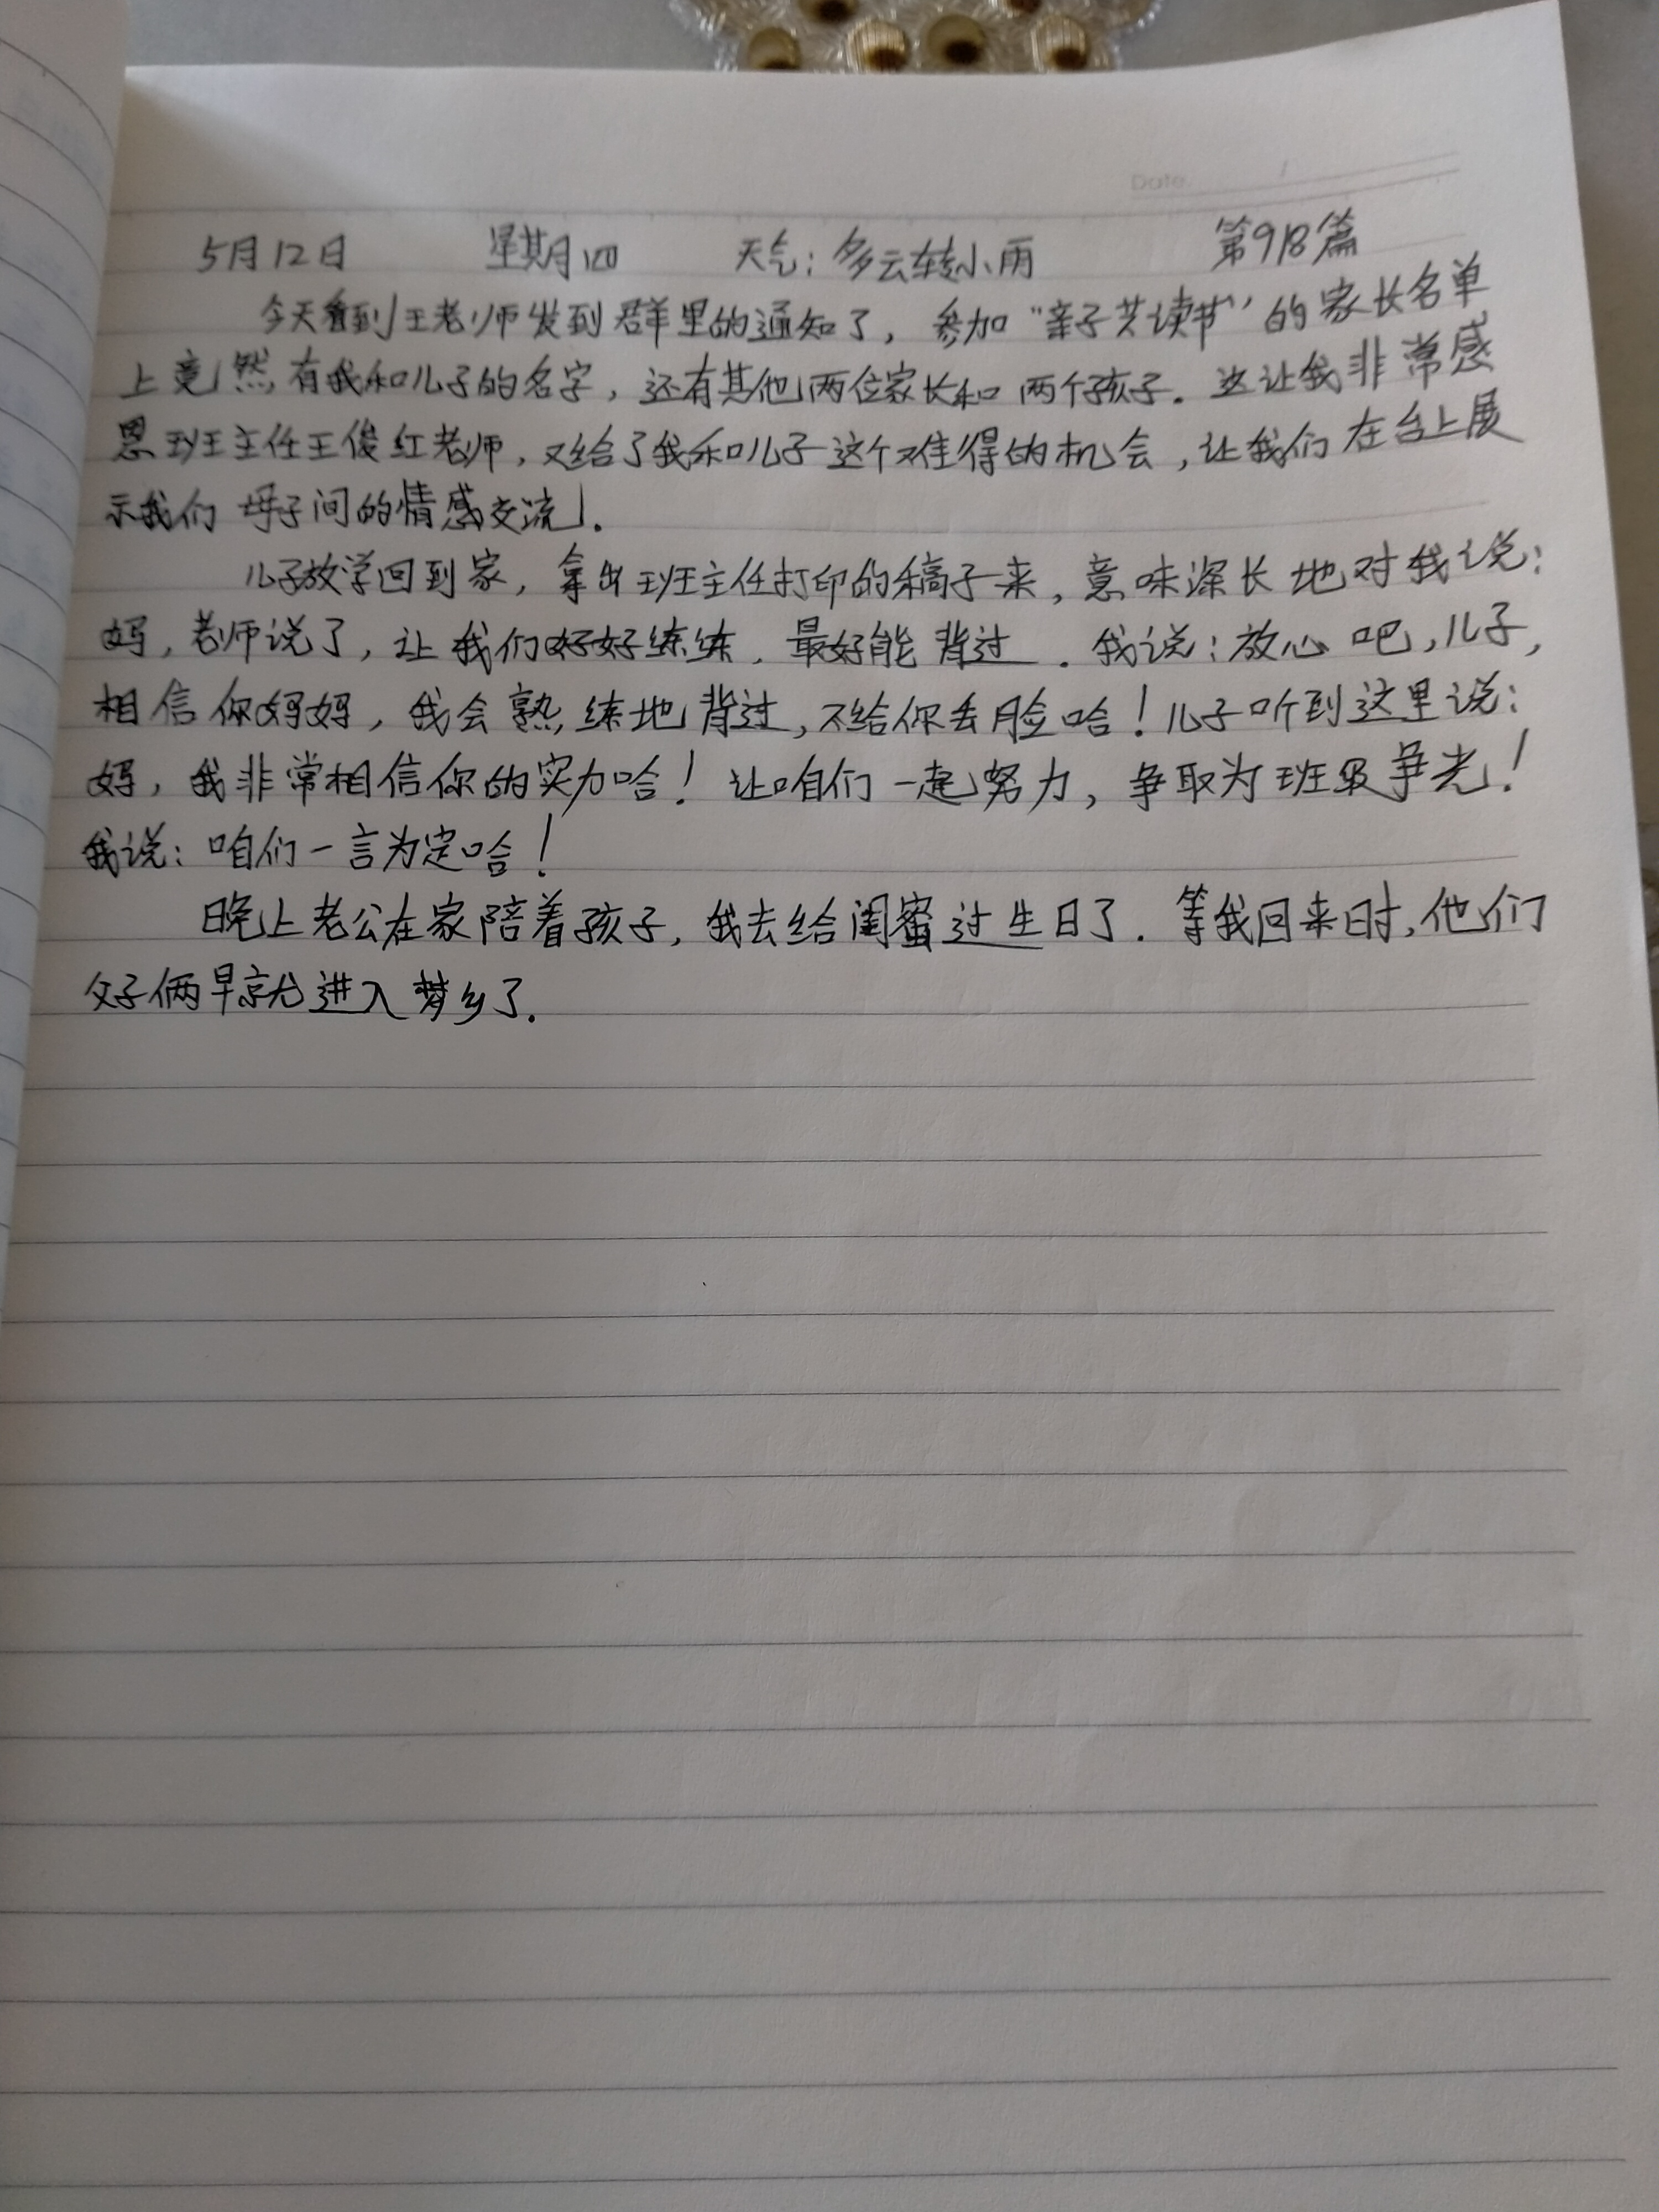 Date. /
5月12日 星期四 天气：多云转小雨 第918篇
今天看到王老师发到群里的通知了，参加“亲子共读书”的家长名单
上竟然有我和儿子的名字，还有其他两位家长和两个孩子．这让我非常感
恩班主任王俊红老师，又给了我和儿子这个难得的机会，让我们在台上展
示我们母子间的情感交流．
儿子放学回到家，拿出班主任打印的稿子来，意味深长地对我说：
妈，老师说了，让我们好好练练．最好能背过．我说：放心吧，儿子，
相信你妈妈，我会熟练地背过，不给你丢脸哈！儿子听到这里说：
妈，我非常相信你的实力哈！让咱们一起努力，争取为班级争光！
我说：咱们一言为定哈！
晚上老公在家陪着孩子，我去给闺蜜过生日了．等我回来时，他们
父子俩早就进入梦乡了．